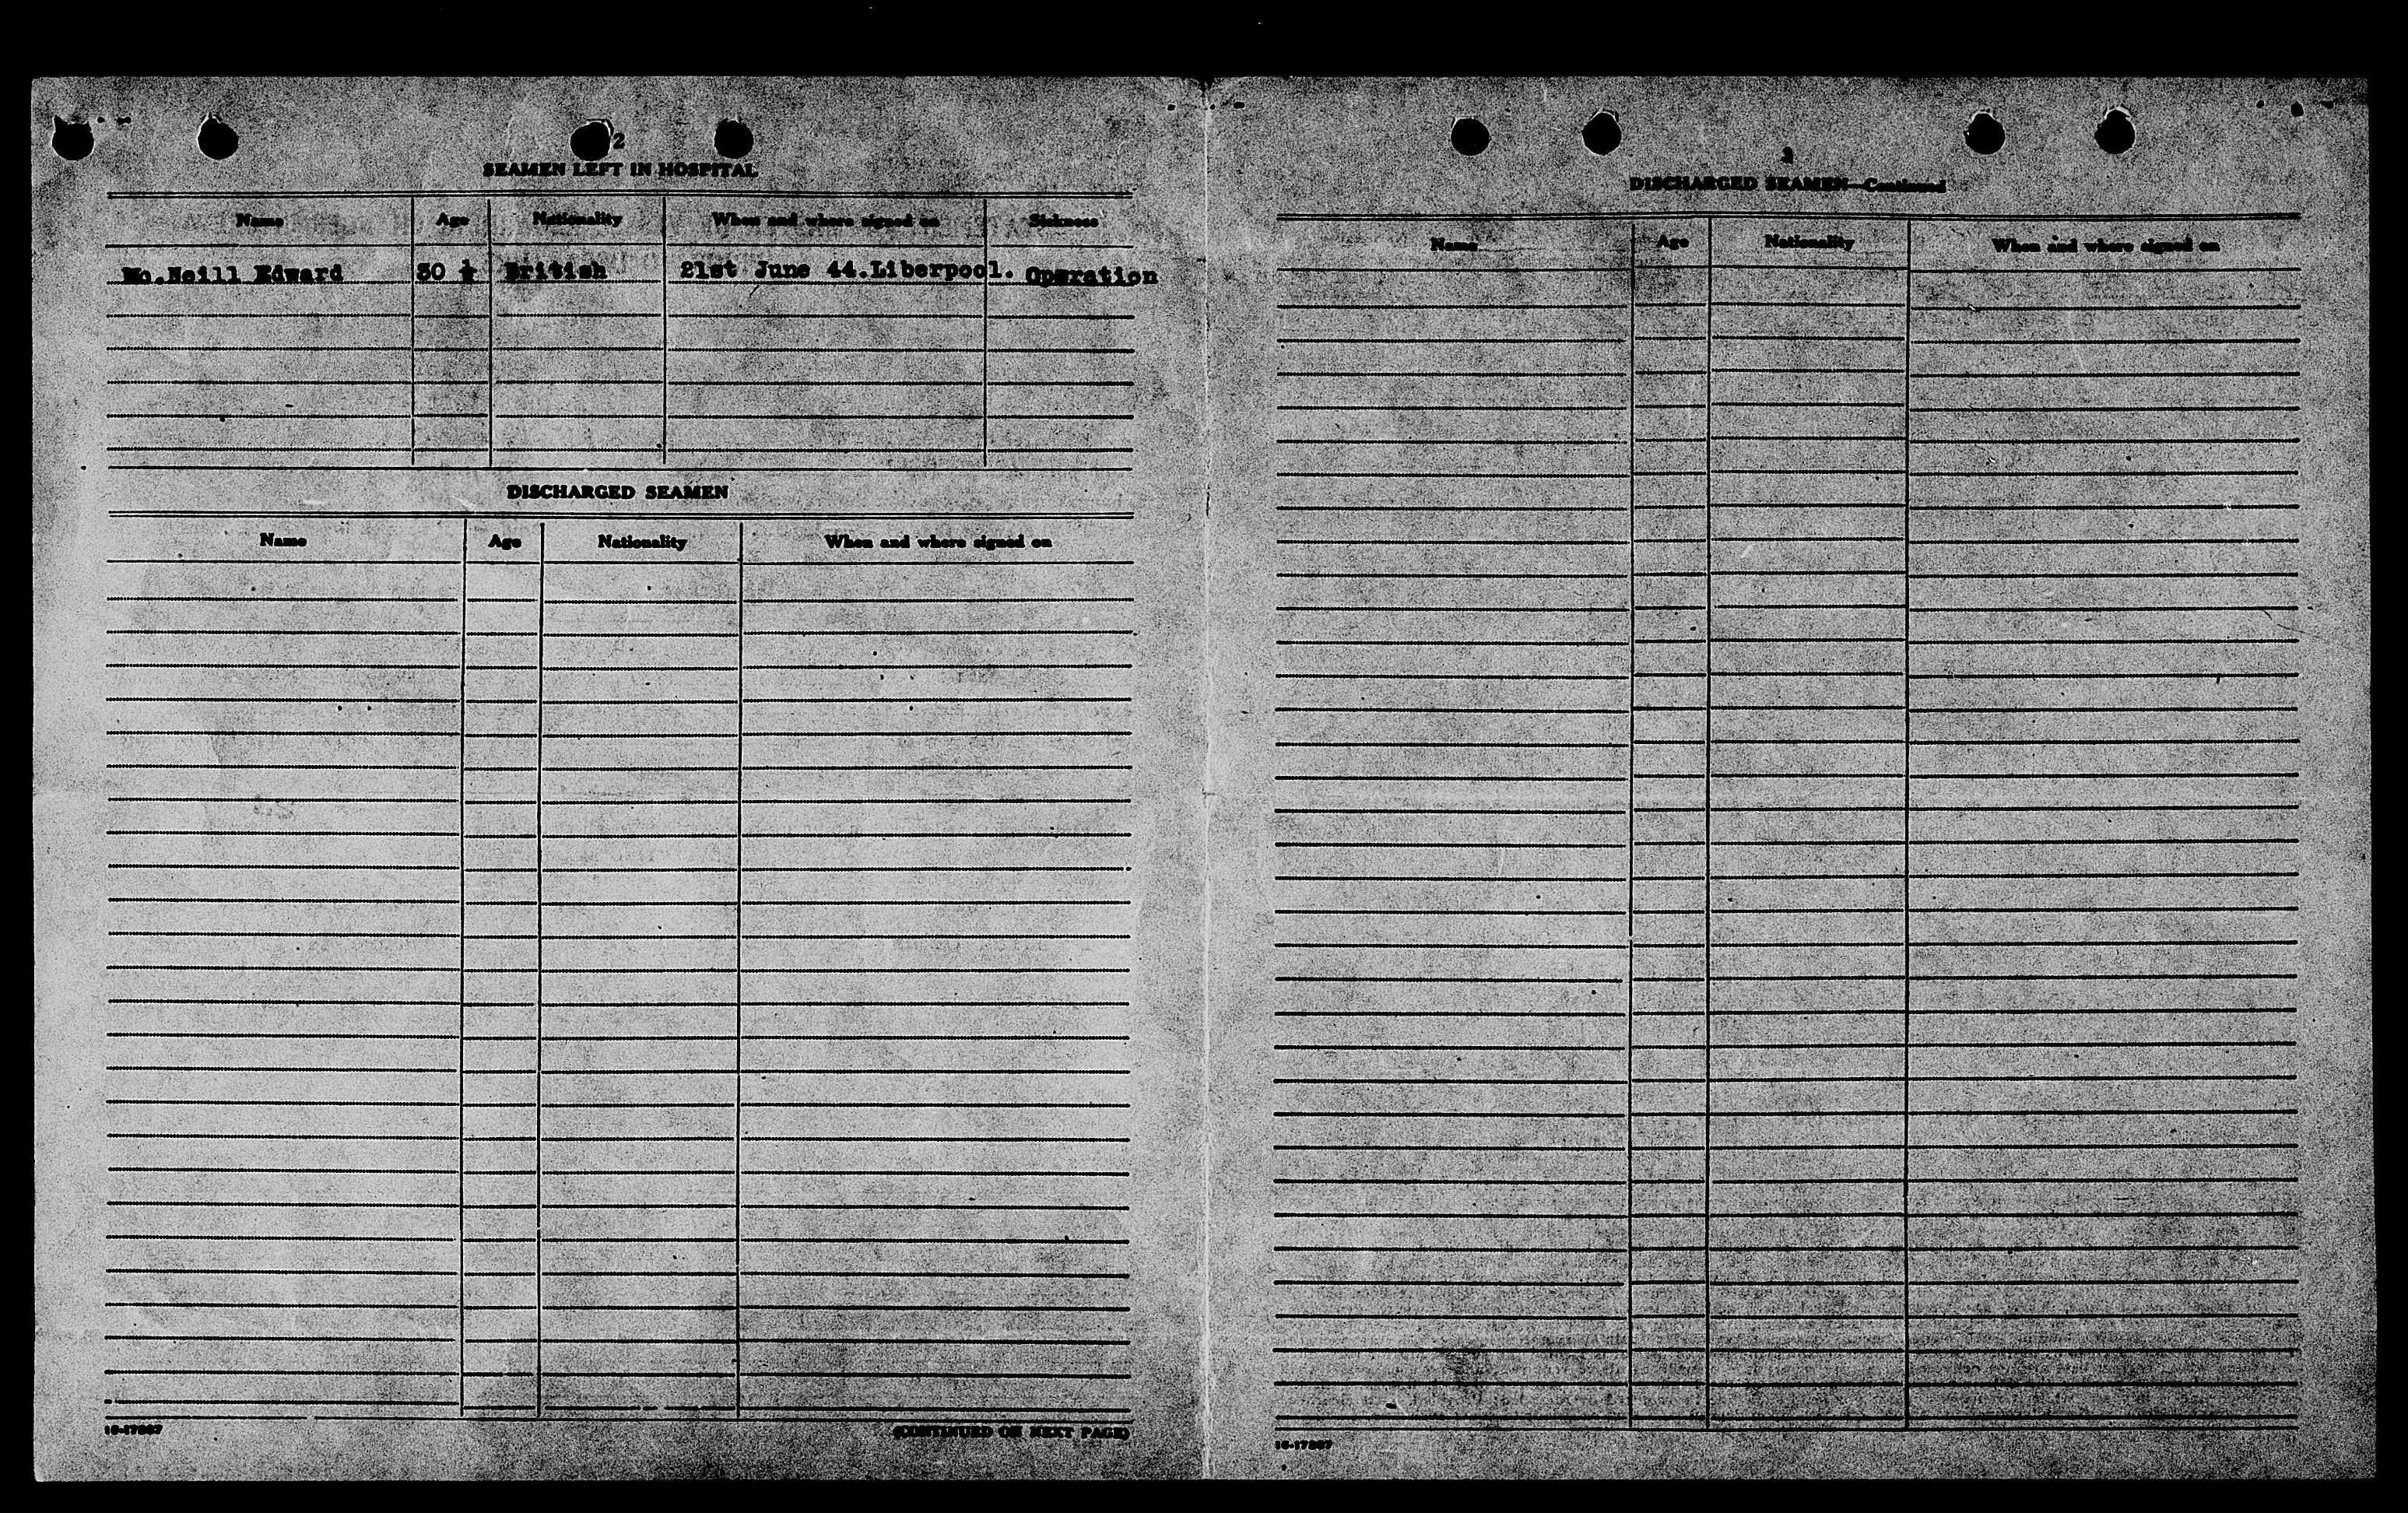 2
SEAMEN LEFT IN HOSPITAL
Name Age Nationality When and where signed on Sickness
Mc.Neill Edward 30 ½ British 21st June 44.Liberpool. Operation
DISCHARGED SEAMEN
Name Age Nationality When and where signed on
(CONTINUED ON NEXT PAGE)
3
DISCHARGED SEAMEN—Continued
Name Age Nationality When and where signed on